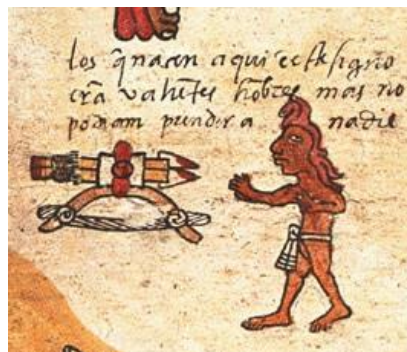 los q̃ naçen aqui ẽ este signo
erã valiẽtes hõbres mas no
podiam prender a nadie